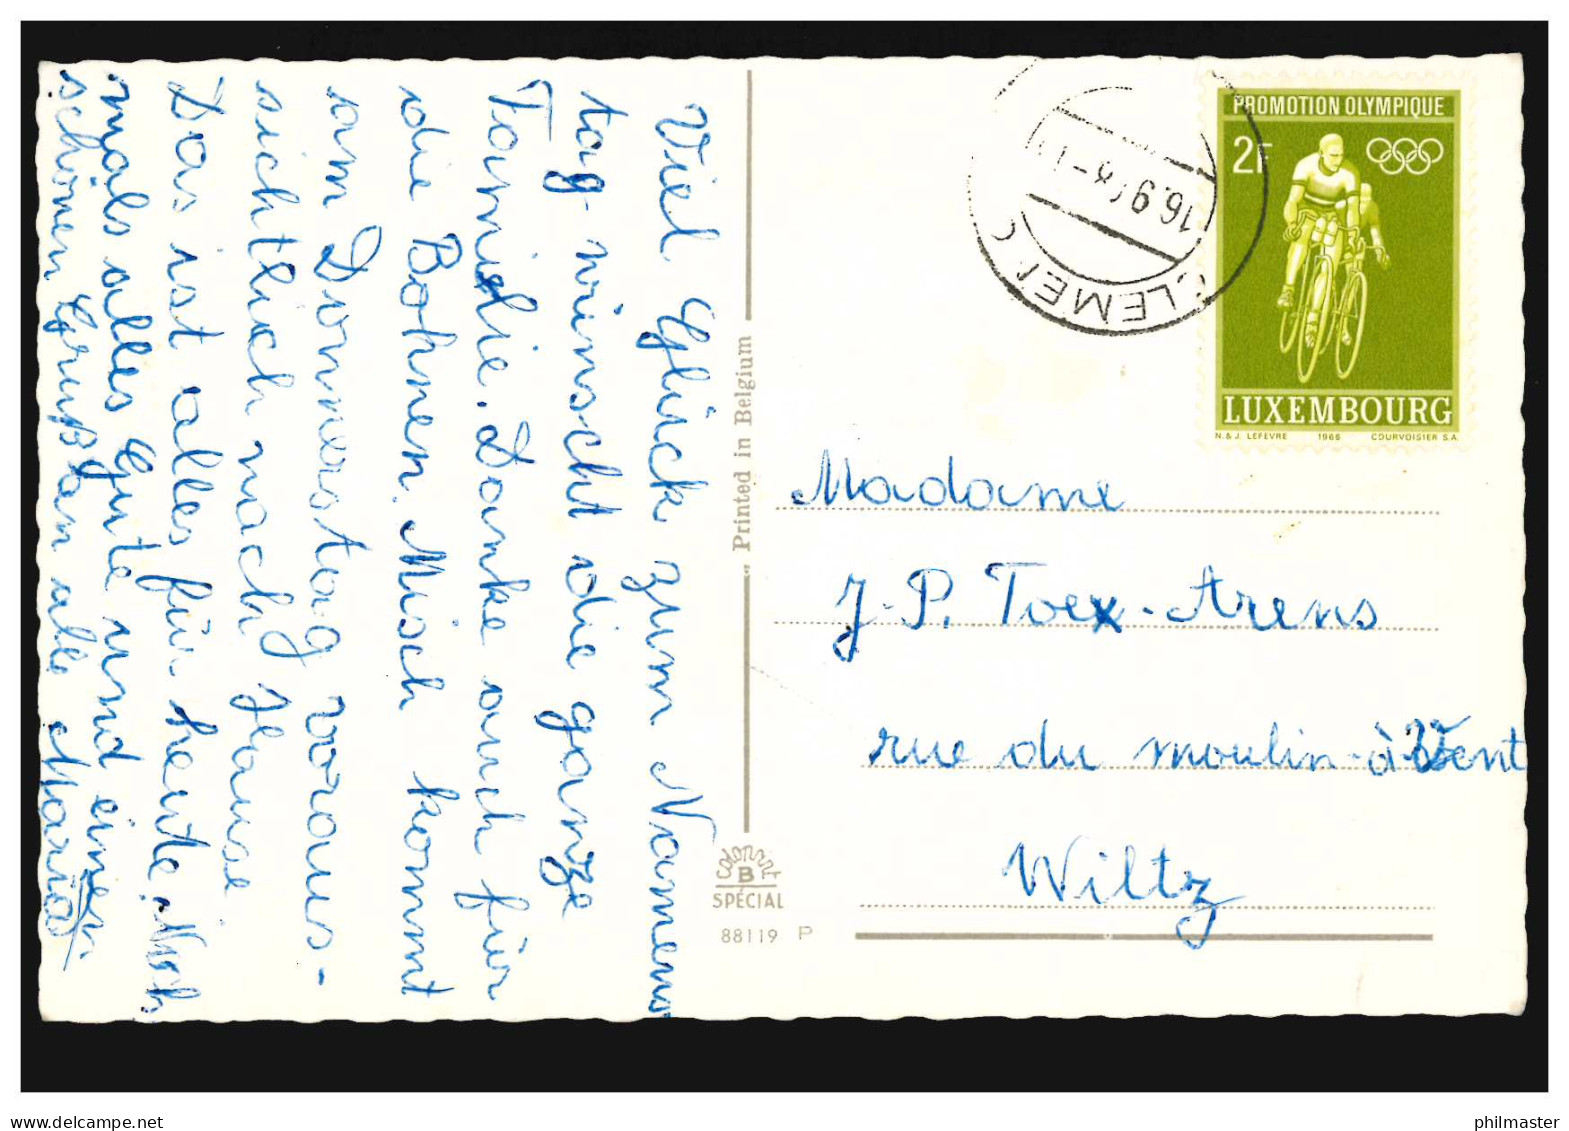 Viel Glück zum Namens
tag wünscht die ganze
Familie. Danke auch für
die Bohnen. Misch kommt
am Donnerstag voraus-
sichtlich nach Hause
Das ist alles für heute. Noch
mals alles Gute und einen
schönen Gruß an alle Maria
Printed in Belgium
B
SPÉCIAL
88119 P
16.9
PROMOTION OLYMPIQUE
2F
LUXEMBOURG
N.& J. LEFEVRE 1966 COURVOISIER S.A.
Madame
J.-P. Toex-Arens
rue du moulin-à-Vent
Wiltz
www.delcampe.net
philmaster